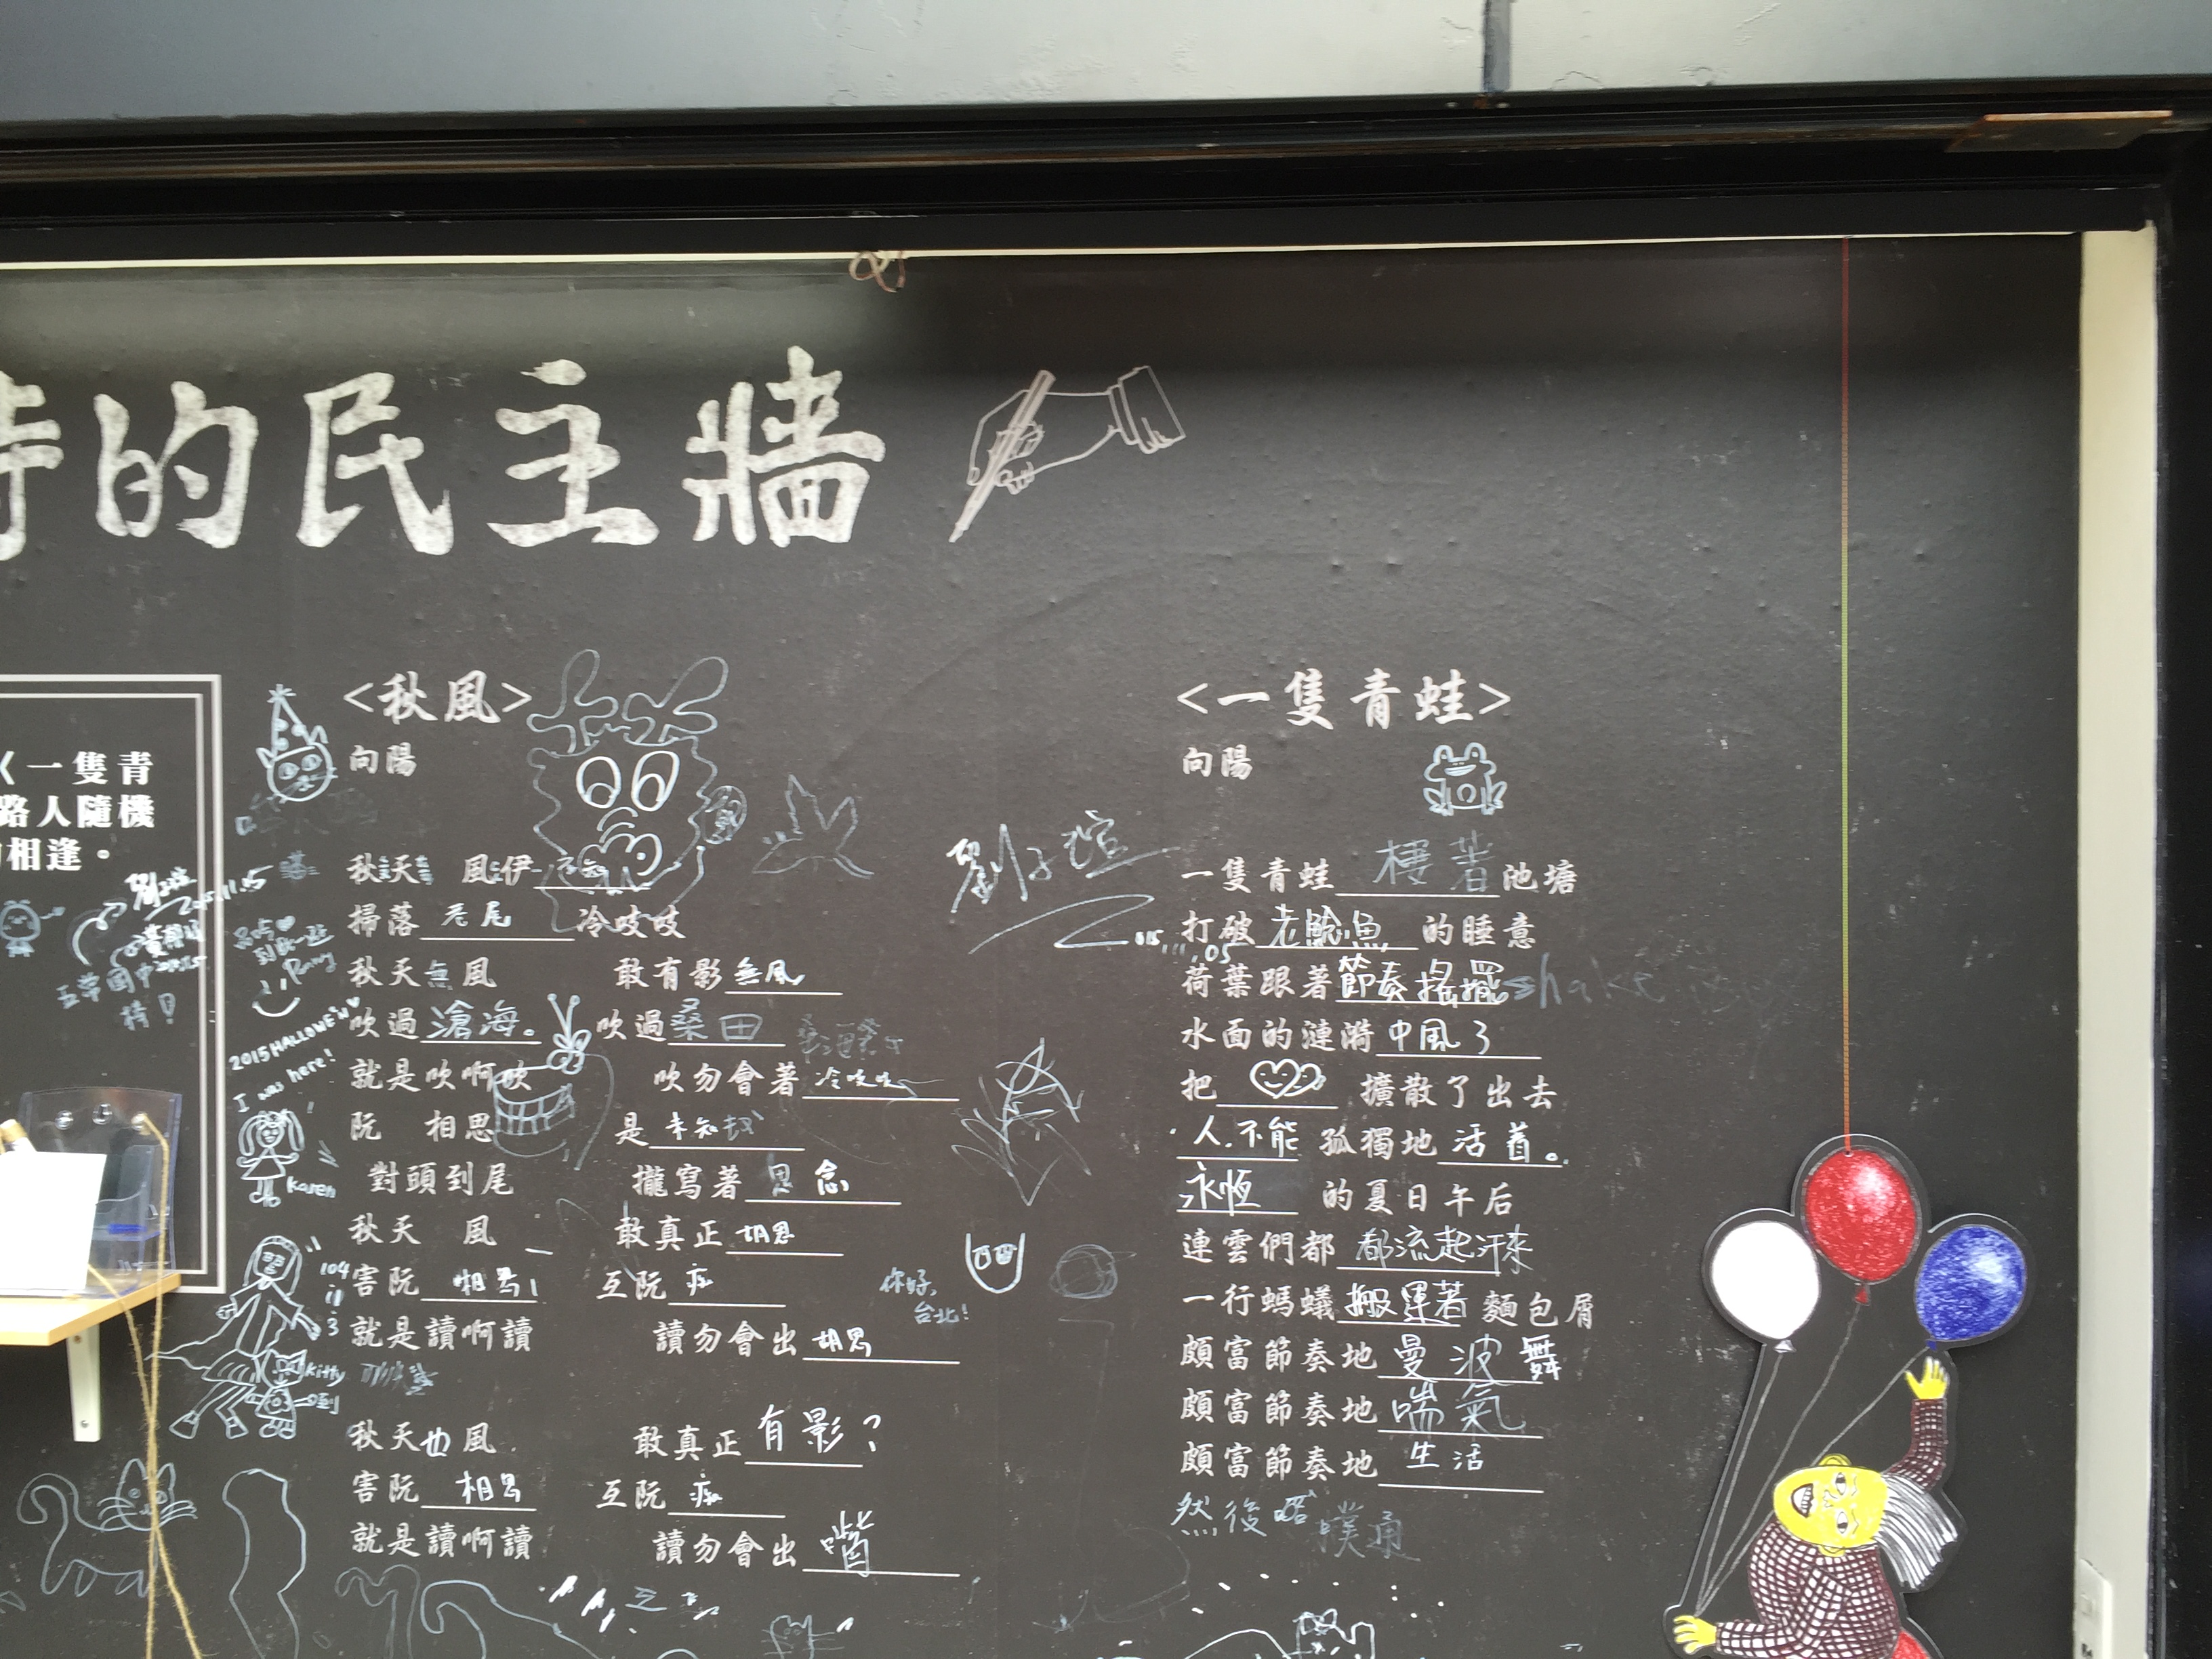 的民主牆
一隻青
路人隨機
相逢。
2015.11.15
2015 HALLOWEEN
I was here!
Karen
104
11
3
Kitty
<秋風>
向陽
秋天 風 伊
掃落 冷吱吱
秋天無風 敢有影無風
吹過滄海。 吹過桑田
就是吹啊吹 吹勿會著冷吱吱
阮 相思 是未知
對頭到尾 攏寫著思念
秋天 風 敢真正胡思
害阮相思 互阮
就是讀啊讀 讀勿會出胡思
秋天也風 敢真正有影?
害阮相思 互阮
就是讀啊讀 讀勿會出嘴
你好,
台北!
劉子瑄
<一隻青蛙>
向陽
一隻青蛙 著池塘
打破老鯰魚的睡意
荷葉跟著節奏搖擺shake
水面的漣漪中風了
把 擴散了出去
人不能孤獨地活着。
永恆的夏日午后
連雲們都都流起汗來
一行螞蟻搬運著麵包屑
頗富節奏地曼波舞
頗富節奏地喘氣
頗富節奏地生活
然後 噗通